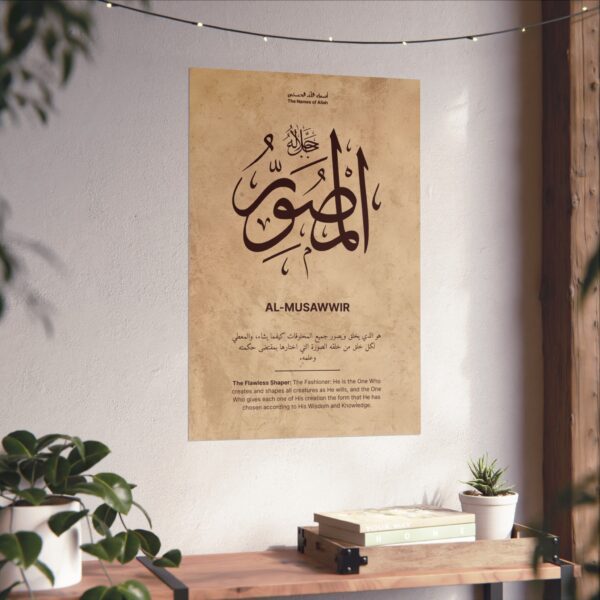 أسماء الله الحسنى
The Names of Allah
جل جلاله
المصور
AL-MUSAWWIR
هو الذي يخلق ويصور جميع المخلوقات كيفما يشاء، والمعطي
لكل خلق من خلقه الصورة التي اختارها بمقتضى حكمته
وعلمه.
The Flawless Shaper: The Fashioner: He is the One Who
creates and shapes all creatures as He wills, and the One
Who gives each one of His creation the form that He has
chosen according to His Wisdom and Knowledge.